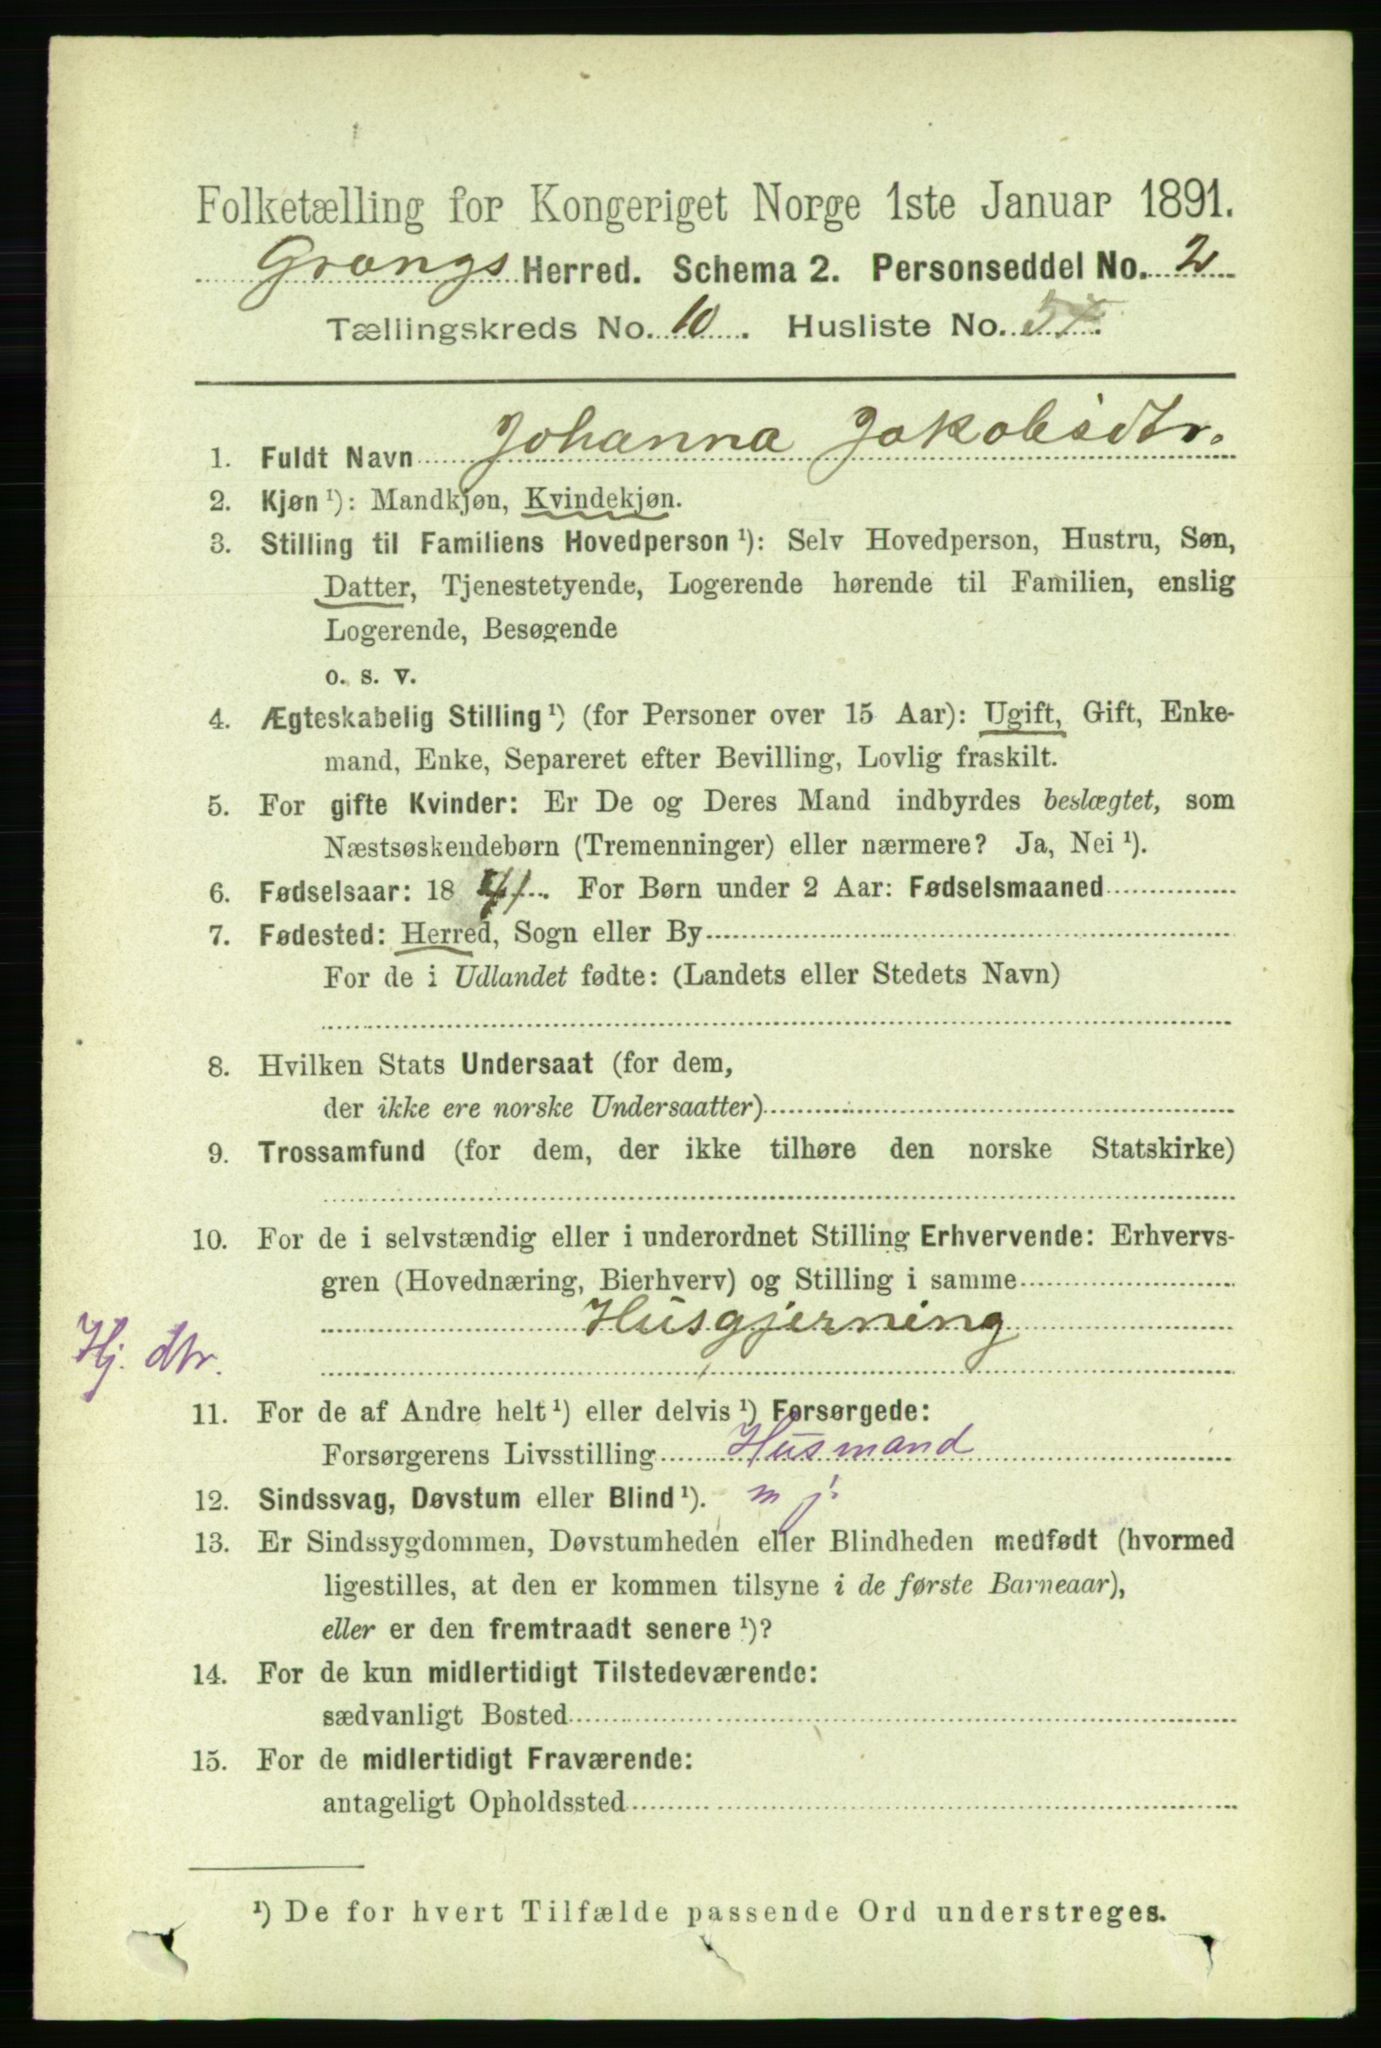 Folketælling for Kongeriget Norge 1ste Januar 1891.
Grongs Herred. Schema 2. Personseddel No. 2
Tællingskreds No. 10. Husliste No.
1. Fuldt Navn Johanna Jakobsdtr.
2. Kjøn ¹): Mandkjøn, Kvindekjøn.
3. Stilling til Familiens Hovedperson ¹): Selv Hovedperson, Hustru, Søn,
Datter, Tjenestetyende, Logerende hørende til Familien, enslig
Logerende, Besøgende
o. s. v.
4. Ægteskabelig Stilling ¹) (for Personer over 15 Aar): Ugift, Gift, Enke-
mand, Enke, Separeret efter Bevilling, Lovlig fraskilt.
5. For gifte Kvinder: Er De og Deres Mand indbyrdes beslægtet, som
Næstsøskendebørn (Tremenninger) eller nærmere? Ja, Nei ¹).
6. Fødselsaar: 18 . For Børn under 2 Aar: Fødselsmaaned
7. Fødested: Herred, Sogn eller By
For de i Udlandet fødte: (Landets eller Stedets Navn)
8. Hvilken Stats Undersaat (for dem,
der ikke ere norske Undersaatter)
9. Trossamfund (for dem, der ikke tilhøre den norske Statskirke)
10. For de i selvstændig eller i underordnet Stilling Erhvervende: Erhvervs-
gren (Hovednæring, Bierhverv) og Stilling i samme
Husgjerning
Hj. dtr.
11. For de af Andre helt ¹) eller delvis ¹) Forsørgede:
Forsørgerens Livsstilling Husmand
12. Sindssvag, Døvstum eller Blind ¹). m j.
13. Er Sindssygdommen, Døvstumheden eller Blindheden medfødt (hvormed
ligestilles, at den er kommen tilsyne i de første Barneaar),
eller er den fremtraadt senere ¹)?
14. For de kun midlertidigt Tilstedeværende:
sædvanligt Bosted
15. For de midlertidigt Fraværende:
antageligt Opholdssted
¹) De for hvert Tilfælde passende Ord understreges.